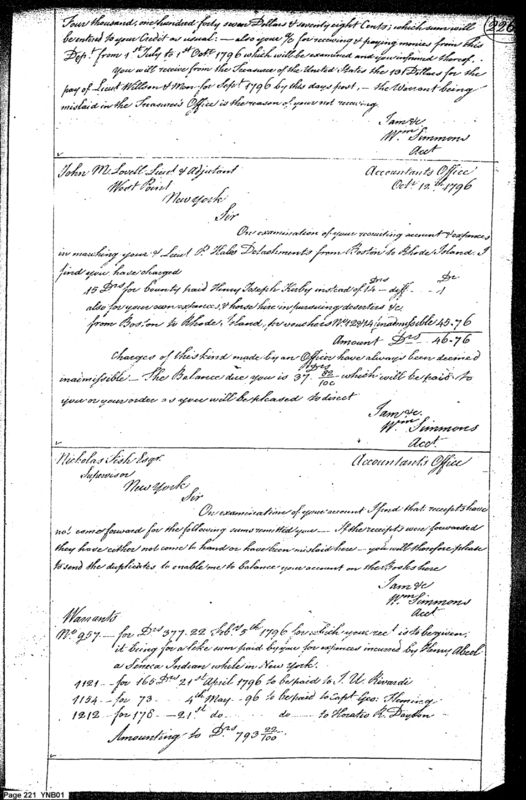 226
Four thousand, one hundred forty seven Dollars & seventy eight Cents; which sum will
be entered to your Credit as usual. — also your % for receiving & paying monies from this
Dept from 1st July to 1st Octr 1796 which will be examined and you informed thereof.
You will receive from the Treasurer of the United States the 101 Dollars for the
pay of Lieut Willson & Men for Septr 1796 by this days post, — the Warrant being
mislaid in the Treasurer's Office is the reason of your not receiving
I am &c
Wm Simmons
Acct
John M. Lovell Lieut & Adjutant Accountants Office
West Point Octr 12th 1796
New York
Sir
On examination of your recruiting account & expences
in marching your & Lieut P. Hales Detachments from Boston to Rhode Island. I
find you have charged Drs Dr
15 Drs for bounty paid Henry Joseph Kirby instead of 14 — diff. 1
also for your own expences, & horse hire in pursuing deserters &c
from Boston to Rhode Island, pr vouchers inadmissible 45.76
Amount Drs 46.76
Charges of this kind made by an Officer have always been deemed
inadmissible — The Balance due you is 37 82/100 which will be paid to
you or your order as you will be pleased to direct
I am &c.
Wm Simmons
Acct.
Nicholas Fish Esqr. Accountants Office
Supervisor
New York
Sir
On examination of your account I find that receipts have
not come forward for the following sums remitted you — If the receipts were forwarded
they have either not come to hand or have been mislaid here — you will therefore please
to send the duplicates to enable me to balance your account on the Books here
I am &c
Wm Simmons
Acct
Warrants
No 957 — for Drs 377.22 Feby 5th 1796 for which your rect is to be given,
it being for a like sum paid by you for expences incurred by Henry Abeel
a Seneca Indian while in New York.
1121 — for 165 Drs 21st April 1796 to be paid to J. U. Rivardi
1154 — for 73. 4th May 96 to be paid to Capt Geo: Fleming
1212 — for 178 — 21st do do — to Horatio R. Dayton
Amounting to Drs 793 22/100
Page 221 YNB01